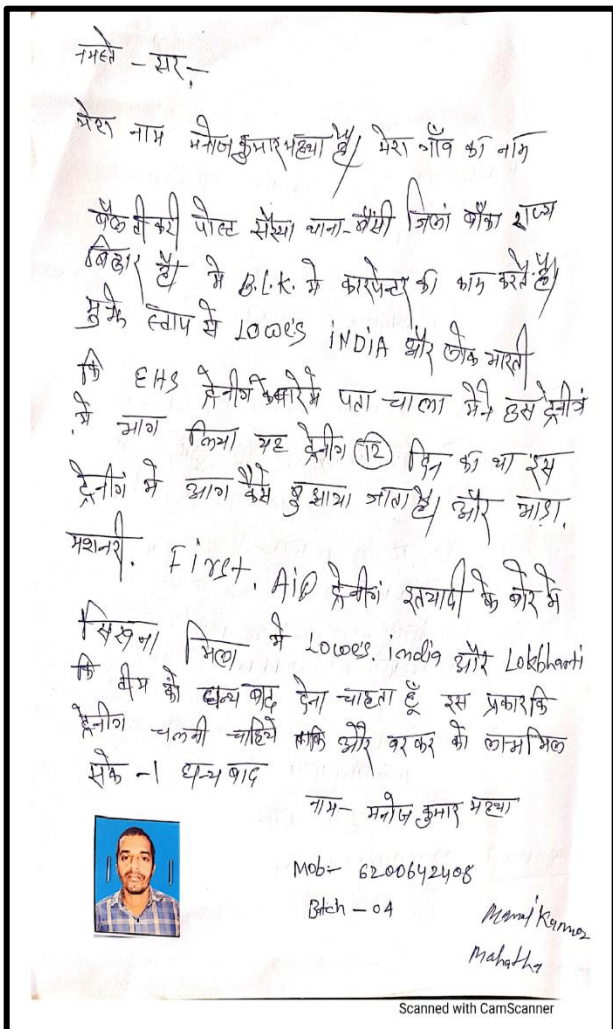 नमस्ते - सर,-
मेरा नाम मनोज कुमार महथा है। मेरा गाँव का नाम
पोस्ट सैरमा थाना-बौंसी जिला बाँका राज्य
बिहार है। मे B.L.K. मे कारपेन्टर की काम करते है।
मुझे स्टाप से LOWe's INDIA और लोक भारती
कि EHS ट्रेनीगं के बारे मे पता चाला मेने उस ट्रेनीगं
मे भाग लिया यह ट्रेनीग 12 दिन का था इस
ट्रेनीगं मे आग कैसे बुझाया जाता है। और
मशनरी. First. AiD ट्रेनीगं इतयादी के बोर मे
सिखना मिला मे LOWe's. india और Lokbharti
कि टीम को धन्य बाद देना चाहता हूँ इस प्रकार कि
ट्रेनीग चलनी चाहिये ताकि और वर कर को लाभ मिल
सेक -। धन्य बाद
नाम- मनोज कुमार महथा
Mob:- 6200642408
Batch - 04
Manoj Kumar
Mahatha
Scanned with CamScanner